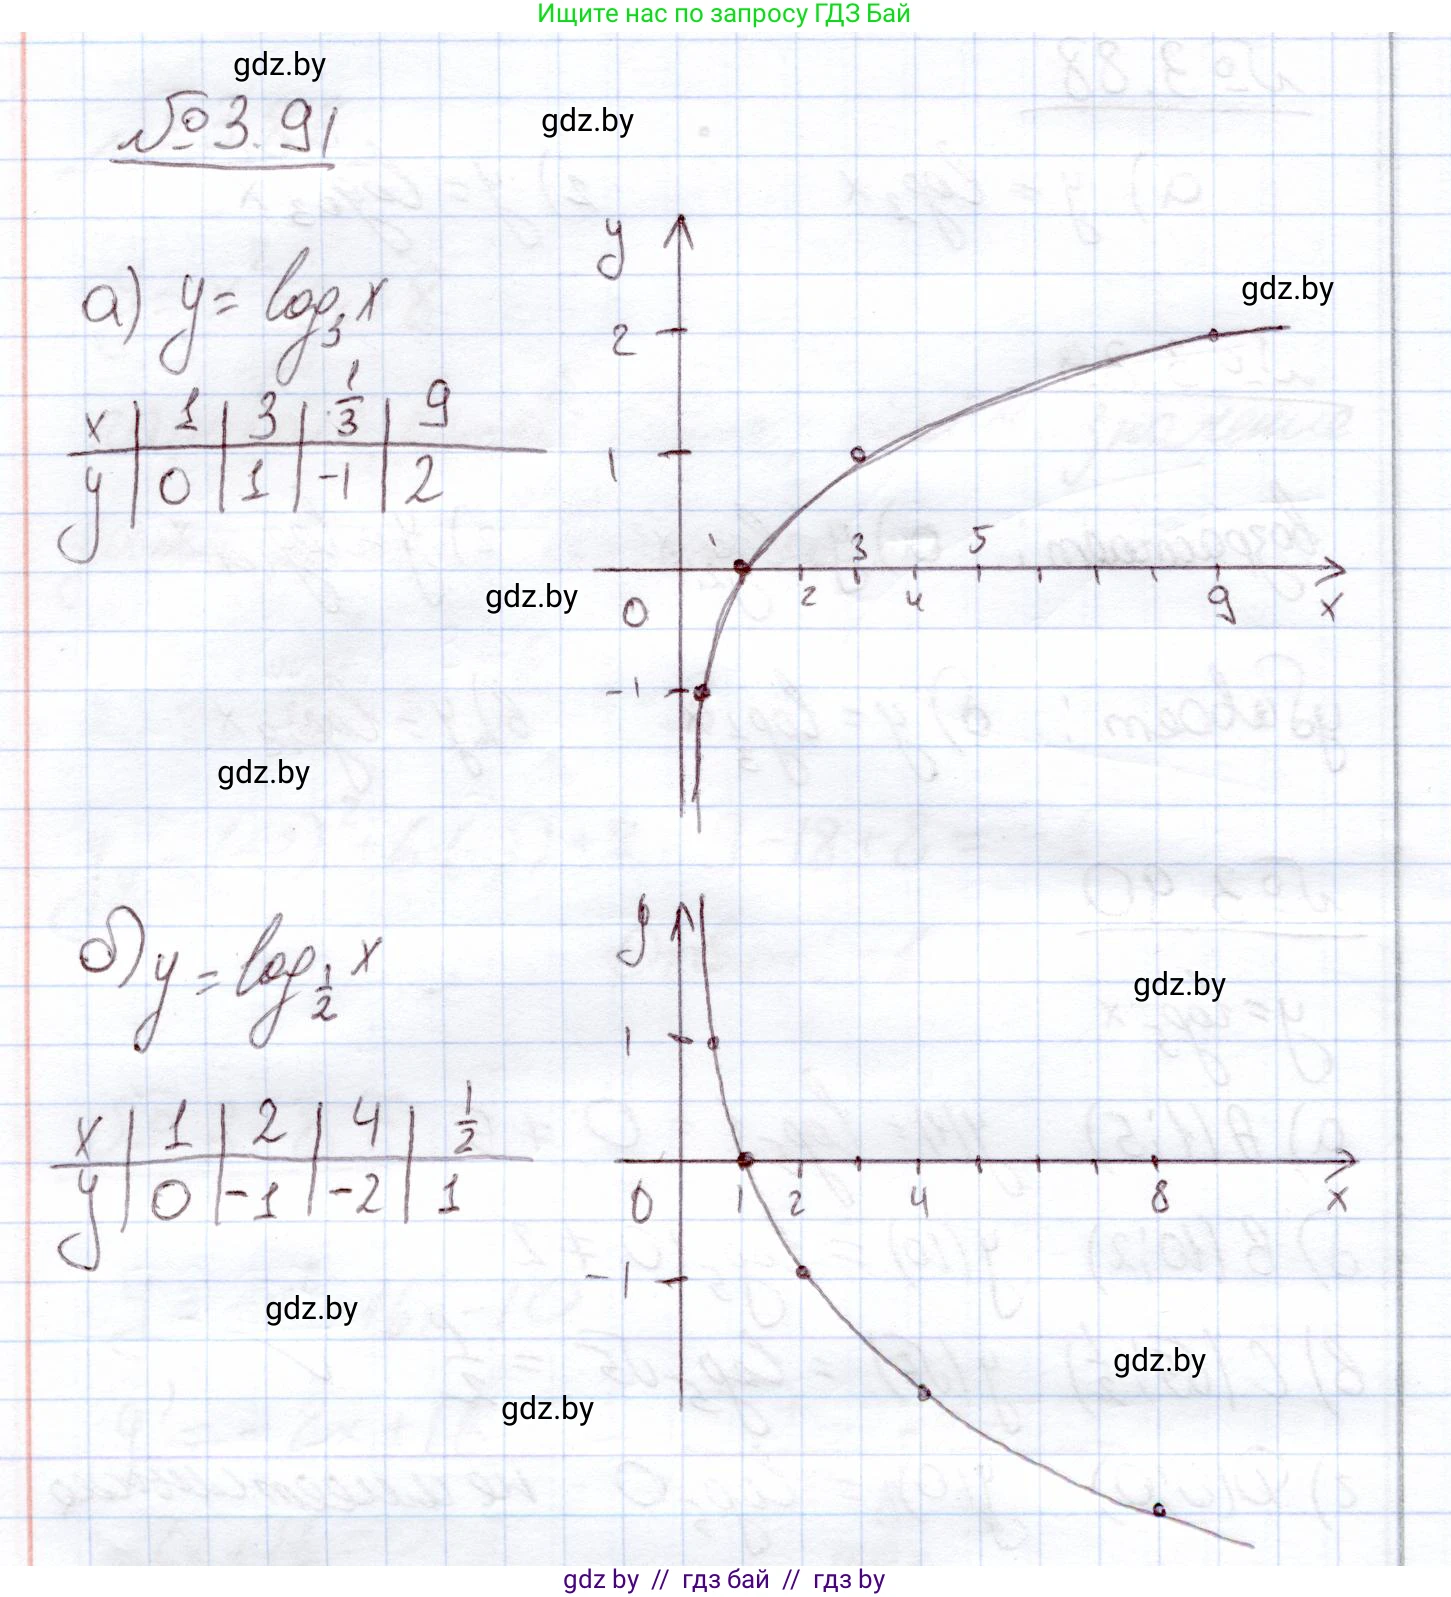 Ищите нас по запросу ГДЗ Бай
gdz.by
№3.91
gdz.by
а) y = log₃x
x | 1 | 3 | 1/3 | 9
y | 0 | 1 | -1 | 2
y
2
1
-1
0
1 2 3 4 5 9 x
gdz.by
gdz.by
gdz.by
б) y = log_{1/2} x
x | 1 | 2 | 4 | 1/2
y | 0 | -1 | -2 | 1
y
1
-1
0 1 2 4 8 x
gdz.by
gdz.by
gdz.by
gdz.by
gdz by // гдз бай // гдз by